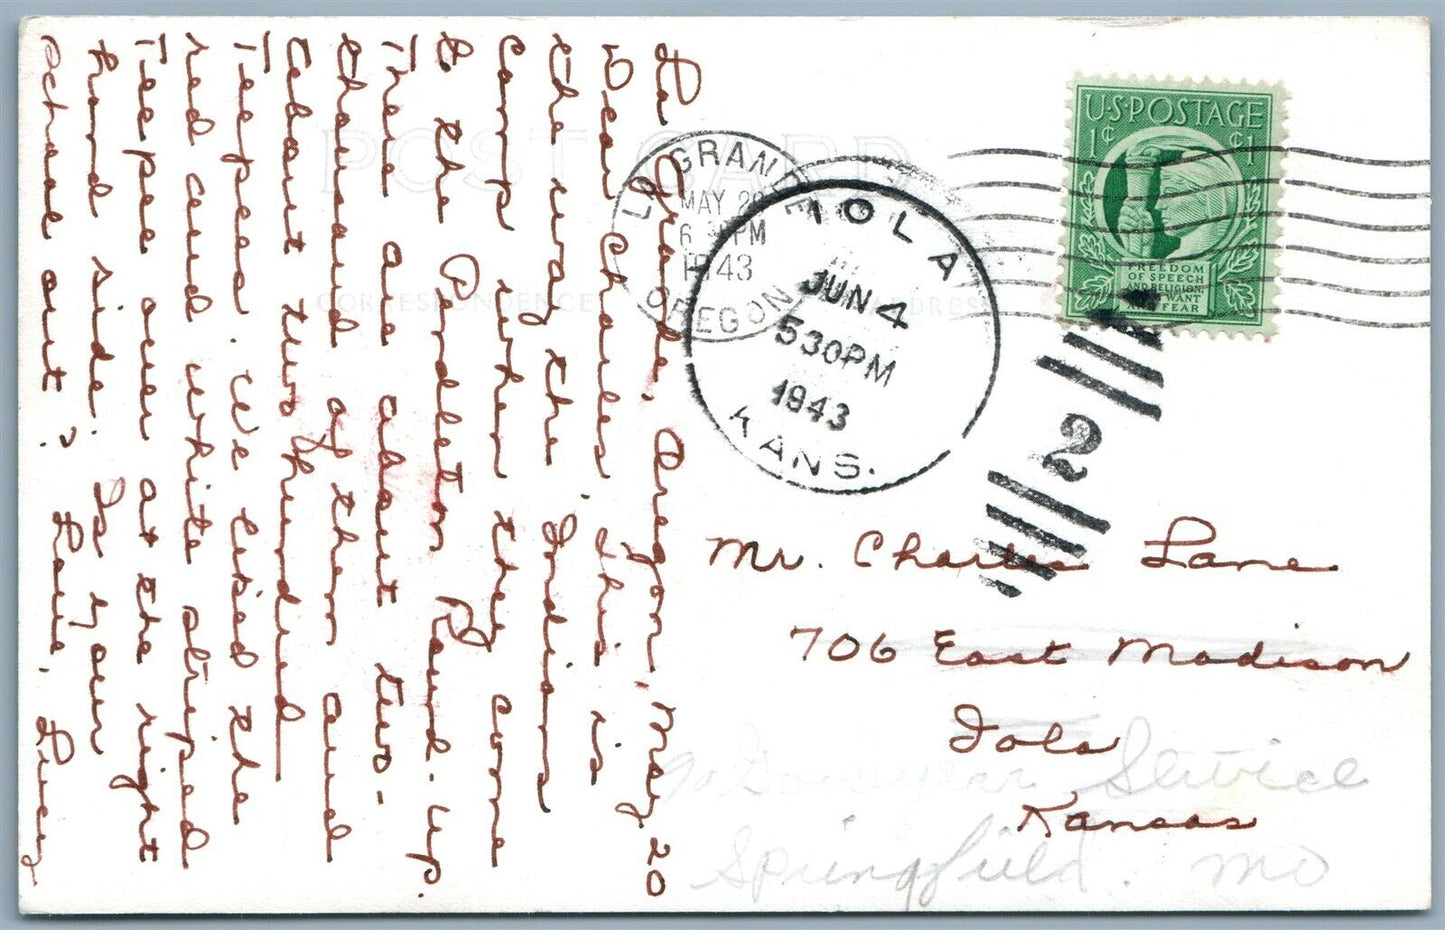 La Grande, Oregon, May, 20
Dear Charles, this is
the way the Indians
camp when they come
to the Pendleton Round-up.
There are about two-
thousand of them and
about two hundred
Teepees. We liked the
red and white striped
Teepee over at the right
hand side. Is your
school out?
Love, Lucy
POST CARD
CORRESPONDENCE
ADDRESS
LA GRANDE
MAY 20
6 PM
1943
OREGON
IOLA
JUN 4
530PM
1943
KANS.
2
U·S·POSTAGE
1¢ ¢1
FREEDOM
OF SPEECH
AND RELIGION,
WANT
FEAR
Mr. Charles Lane
706 East Madison
Iola
Kansas
% Goodyear Service
Springfield. Mo